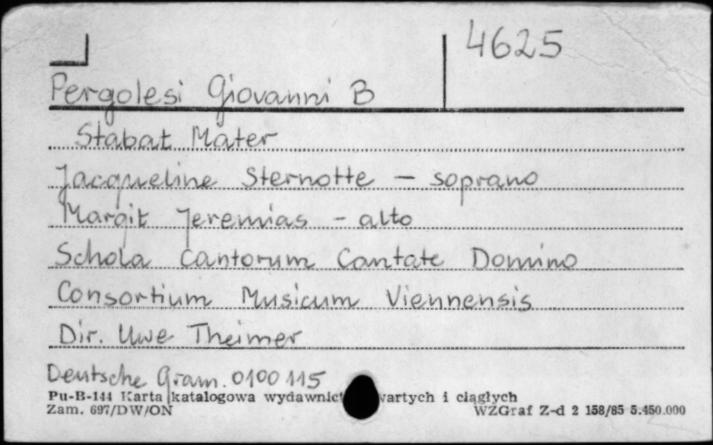 4625
Pergolesi Giovanni B
Stabat Mater
Jacqueline Sternotte – soprano
Margit Jeremias - alto
Schola Cantorum Cantate Domino
Consortium Musicum Viennensis
Dir. Uwe Theimer
Deutsche Gram. 0100 115
Pu-B-141 Karta katalogowa wydawnict wartych i ciągłych
Zam. 697/DW/ON WZGraf Z-d 2 158/85 5.450.000